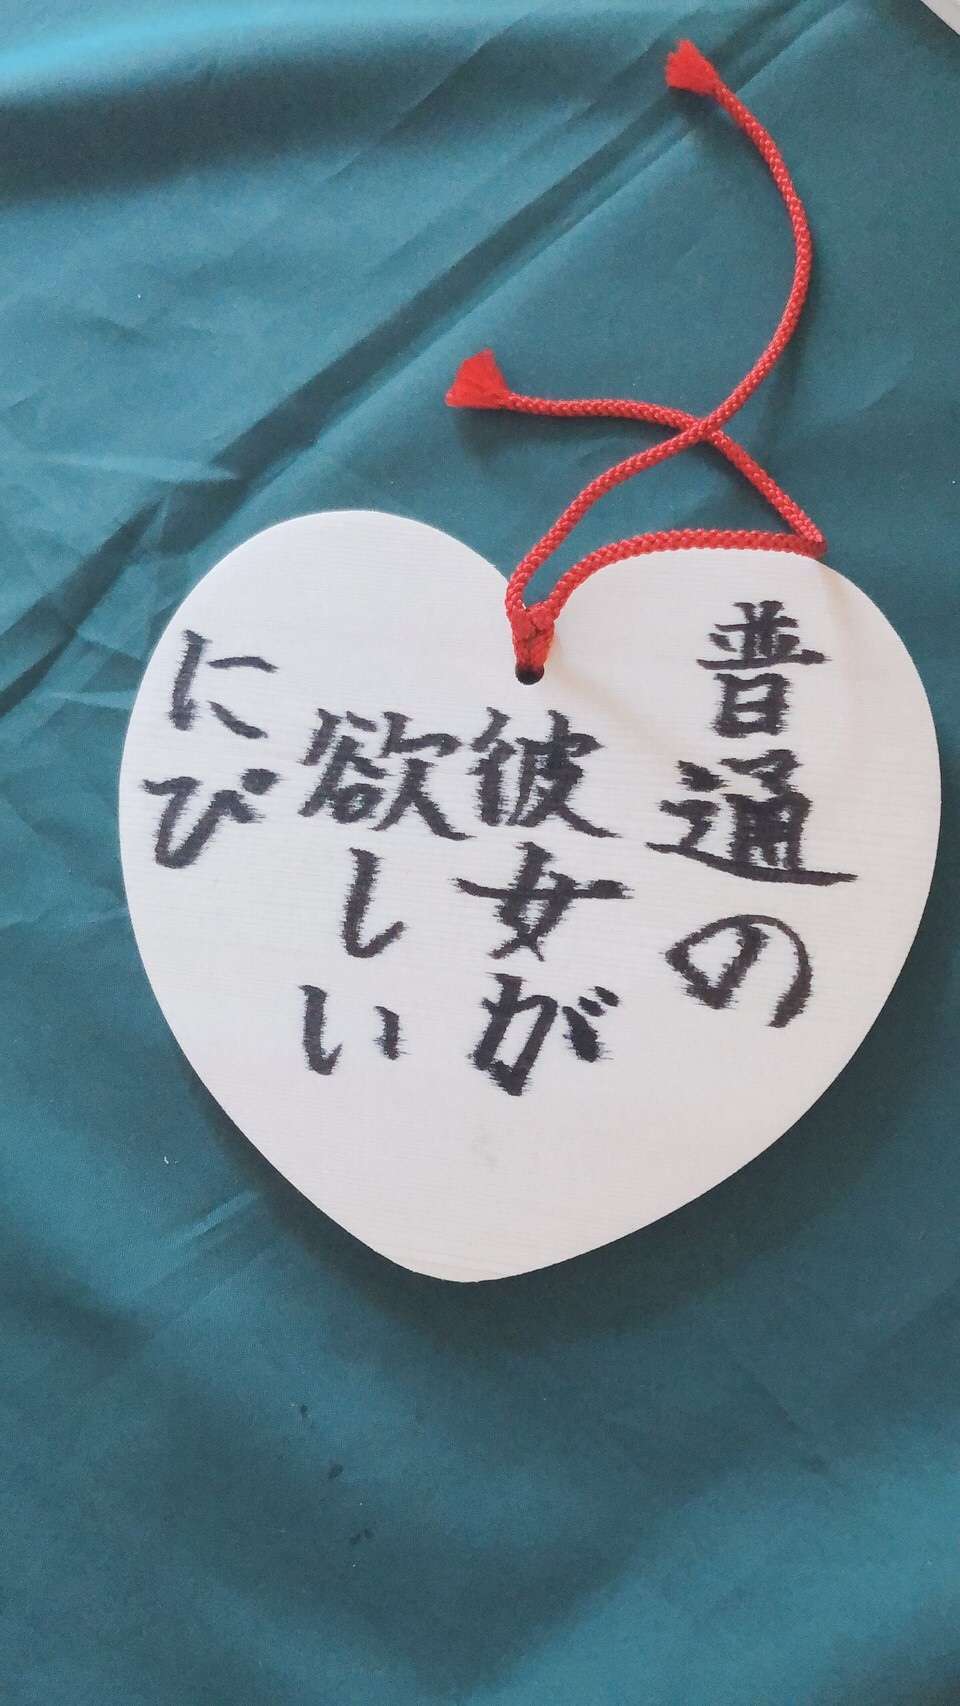 普通の
彼女が
欲しい
にび